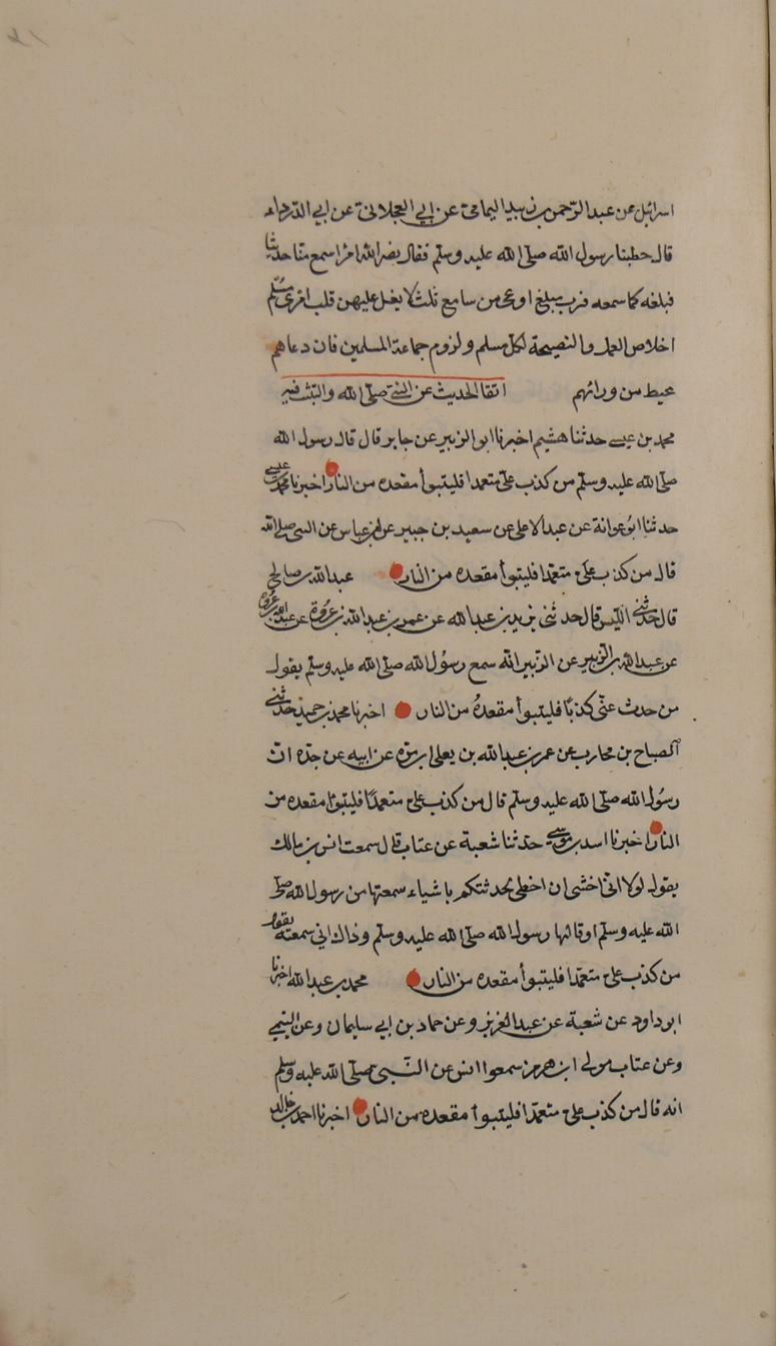 اسرائيل عن عبد الرحمن بن زبيد اليامي عن ابي العجلان عن ابي الدرداء
قال خطبنا رسول الله صلى الله عليه وسلم فقال نضر الله امرا سمع منا حديثا
فبلغه كما سمعه فرب مبلغ اوعى من سامع ثلث لا يغل عليهن قلب امرئ مسلم
اخلاص العمل والنصيحة لكل مسلم ولزوم جماعة المسلمين فان دعاهم
محيط من ورائهم اتقا الحديث عن النبي صلى الله والتثبت فيه
محمد بن عيسى حدثنا هشيم اخبرنا ابو الزبير عن جابر قال قال رسول الله
صلى الله عليه وسلم من كذب علي متعمدا فليتبوأ مقعده من النار اخبرنا محمد بن عيسى
حدثنا ابو عوانة عن عبد الاعلى عن سعيد بن جبير عن ابن عباس عن النبي صلى الله
قال من كذب علي متعمدا فليتبوأ مقعده من النار عبد الله بن صالح
قال حدثني الليث قال حدثني يزيد بن عبد الله عن عمر بن عبد الله بن عروة عن عبد الله بن عروة
عن عبد الله بن الزبير عن الزبير انه سمع رسول الله صلى الله عليه وسلم يقول
من حدث عني كذبا فليتبوأ مقعده من النار اخبرنا محمد بن حميد حدثني
الصباح بن محارب عن عمر بن عبد الله بن يعلى ابن مرة عن ابيه عن جده ان
رسول الله صلى الله عليه وسلم قال من كذب علي متعمدا فليتبوأ مقعده من
النار اخبرنا اسد بن موسى حدثنا شعبة عن عتاب قال سمعت انس بن مالك
يقول لولا اني اخشى ان اخطئ لحدثتكم باشياء سمعتها من رسول الله صلى
الله عليه وسلم او قالها رسول الله صلى الله عليه وسلم وذاك اني سمعته يقول
من كذب علي متعمدا فليتبوأ مقعده من النار محمد بن عبد الله اخبرنا
ابو داود عن شعبة عن عبد العزيز وعن حماد بن ابي سليمان وعن التيمي
وعن عتاب مولى ابن هرمز سمعوا انس عن النبي صلى الله عليه وسلم
انه قال من كذب علي متعمدا فليتبوأ مقعده من النار اخبرنا احمد بن خالد